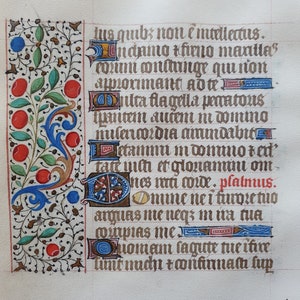 lus quibꝫ non ē intellectus.
In chamo & freno maxillas
eorum constringe qui non
approximant ad te
Multa flagella peccatoris
sperantem autem in domino
misericordia circumdabit
Letamini in domino & exul
tate iusti et gloriamini om
nes recti corde. psalmus.
Domine ne ī furore tuo
arguas me neqꝫ in ira tua
corripias me
Quoniam sagitte tue
sunt michi & confirmasti sup